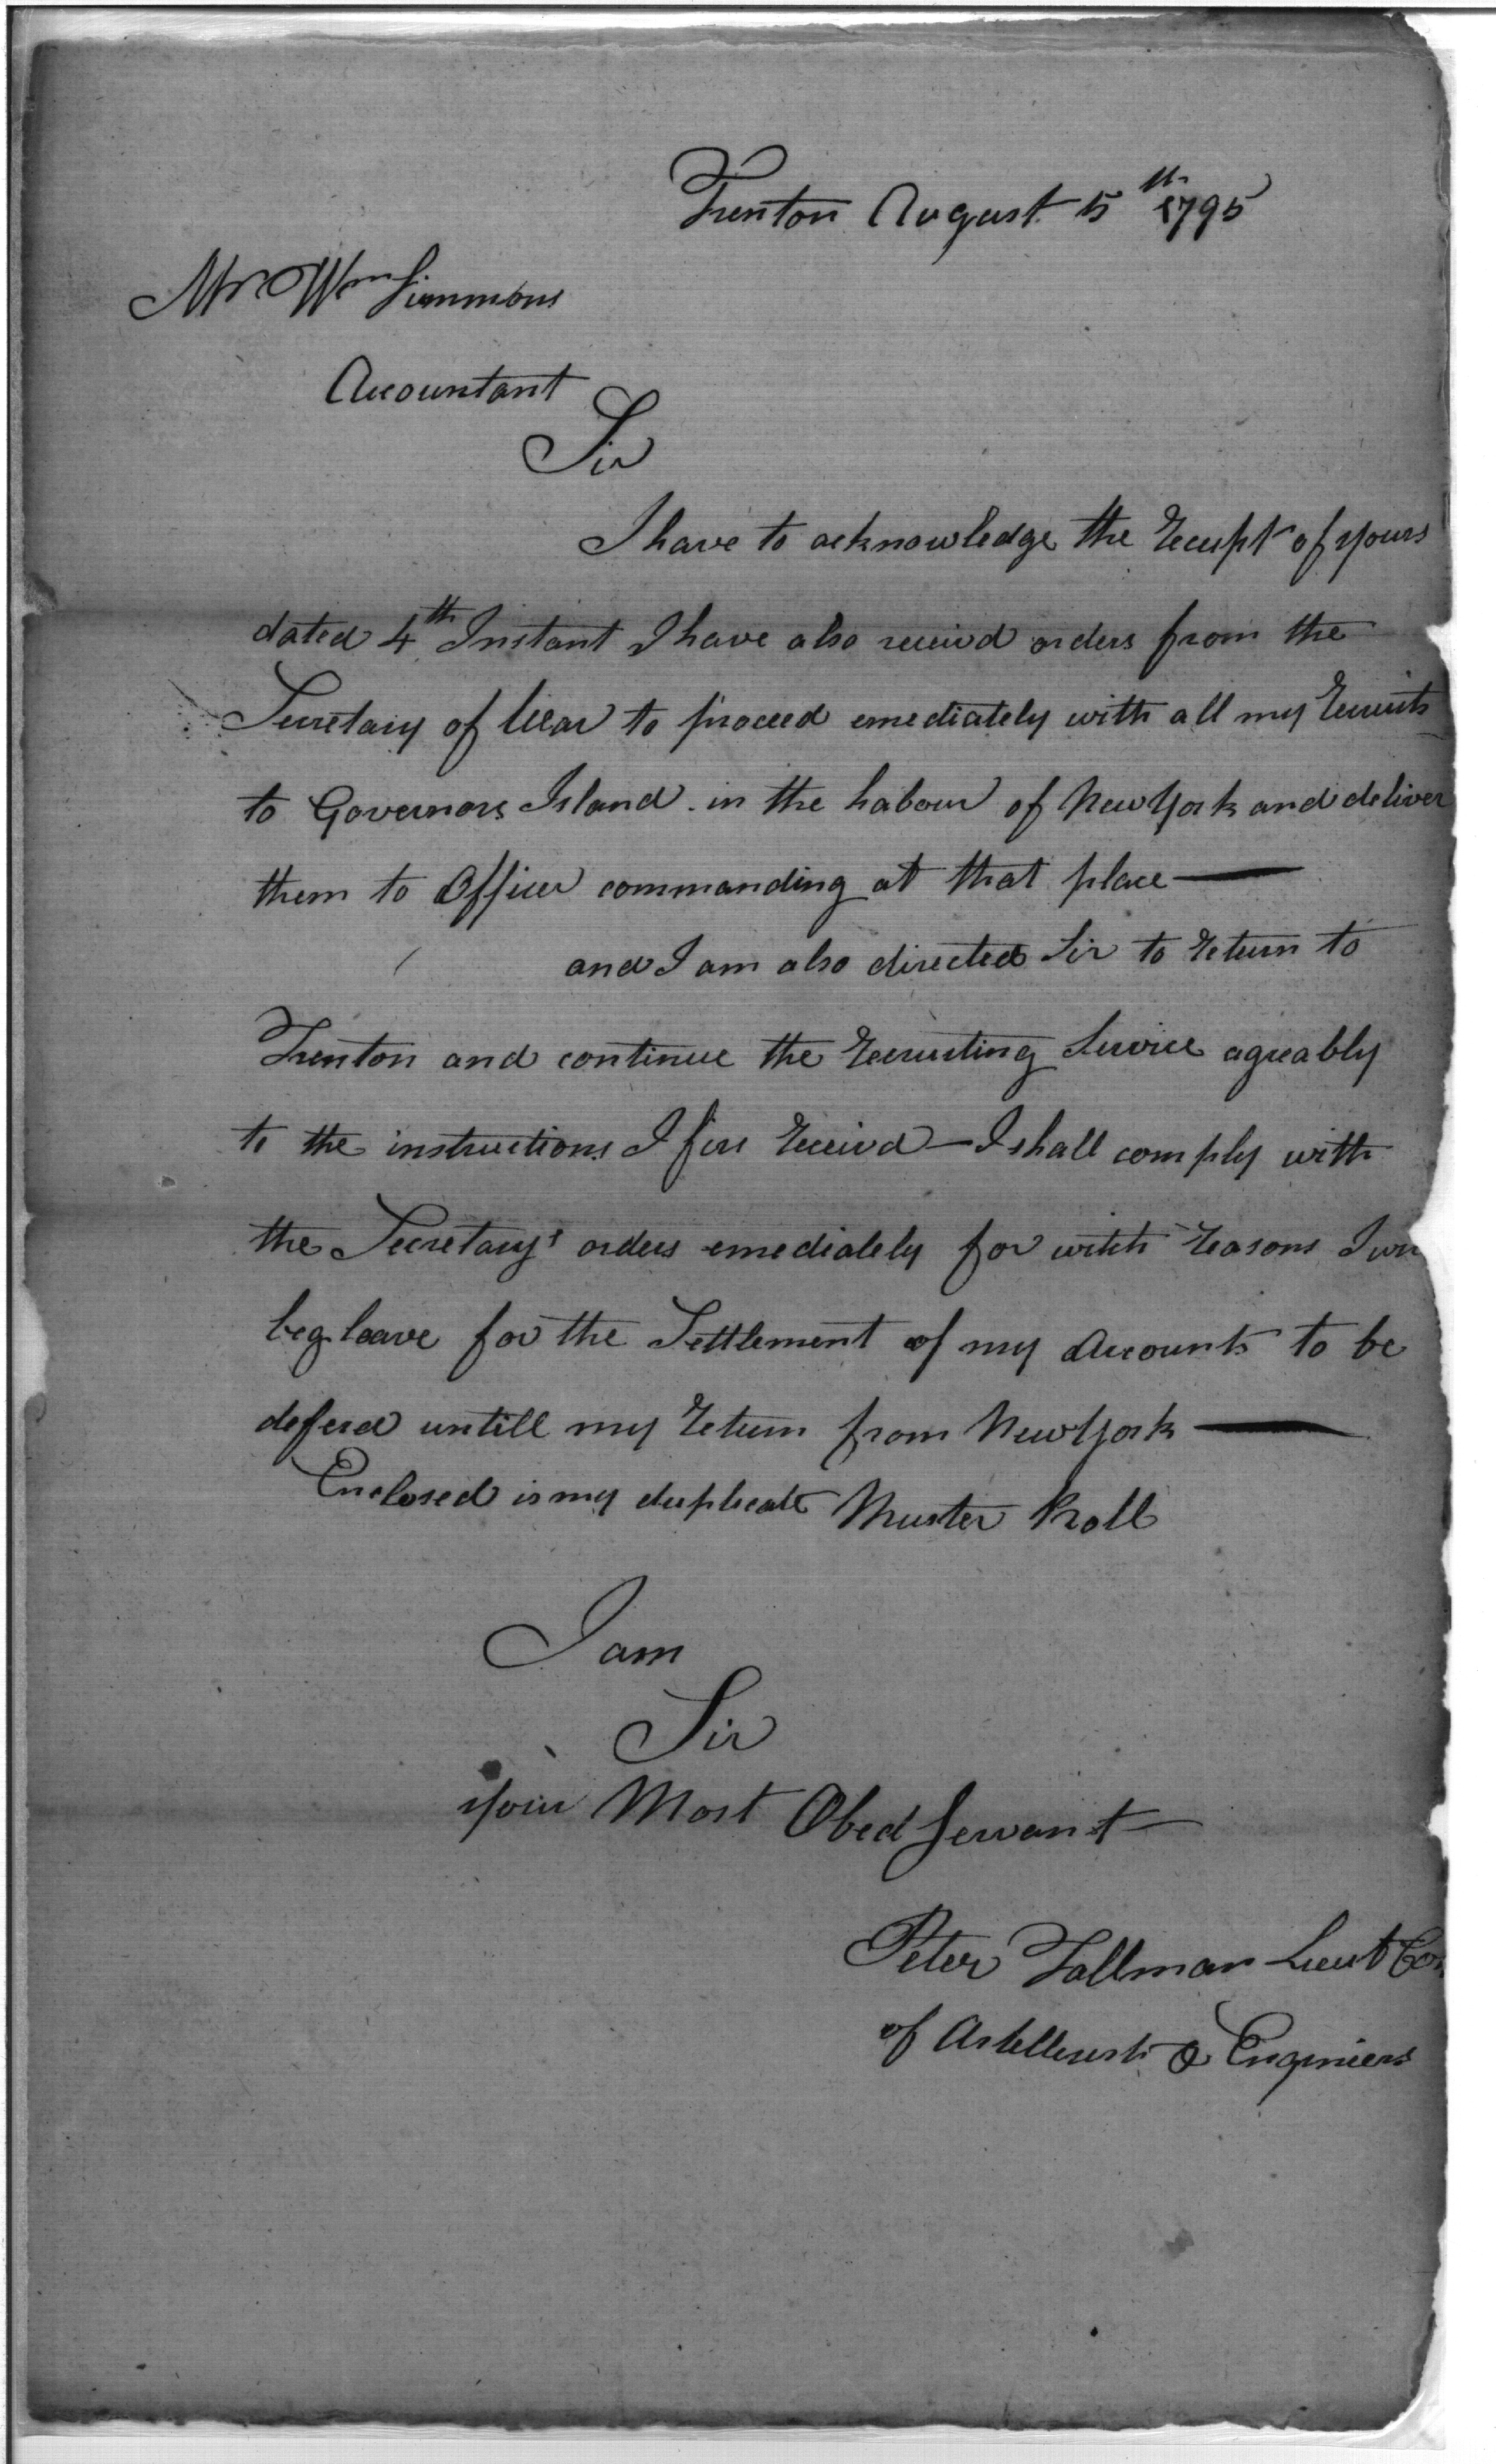 Trenton August 5th 1795
Mr Wm Simmons
Accountant
Sir
I have to acknowledge the receipt of yours
dated 4th Instant I have also receivd orders from the
Secretary of War to proceed emediately with all my recruits
to Governors Island in the habour of New York and deliver
them to Officer commanding at that place —
and I am also directed Sir to return to
Trenton and continue the recruiting Service agreably
to the instructions I firs receivd — I shall comply with
the Secretary's orders emediately for witch reasons I
beg leave for the Settlement of my Accounts to be
deferd untill my return from New York —
Enclosed is my duplicate Muster Roll
I am
Sir
your Most Obed Servant
Peter Tallman Lieut
of & Engineers